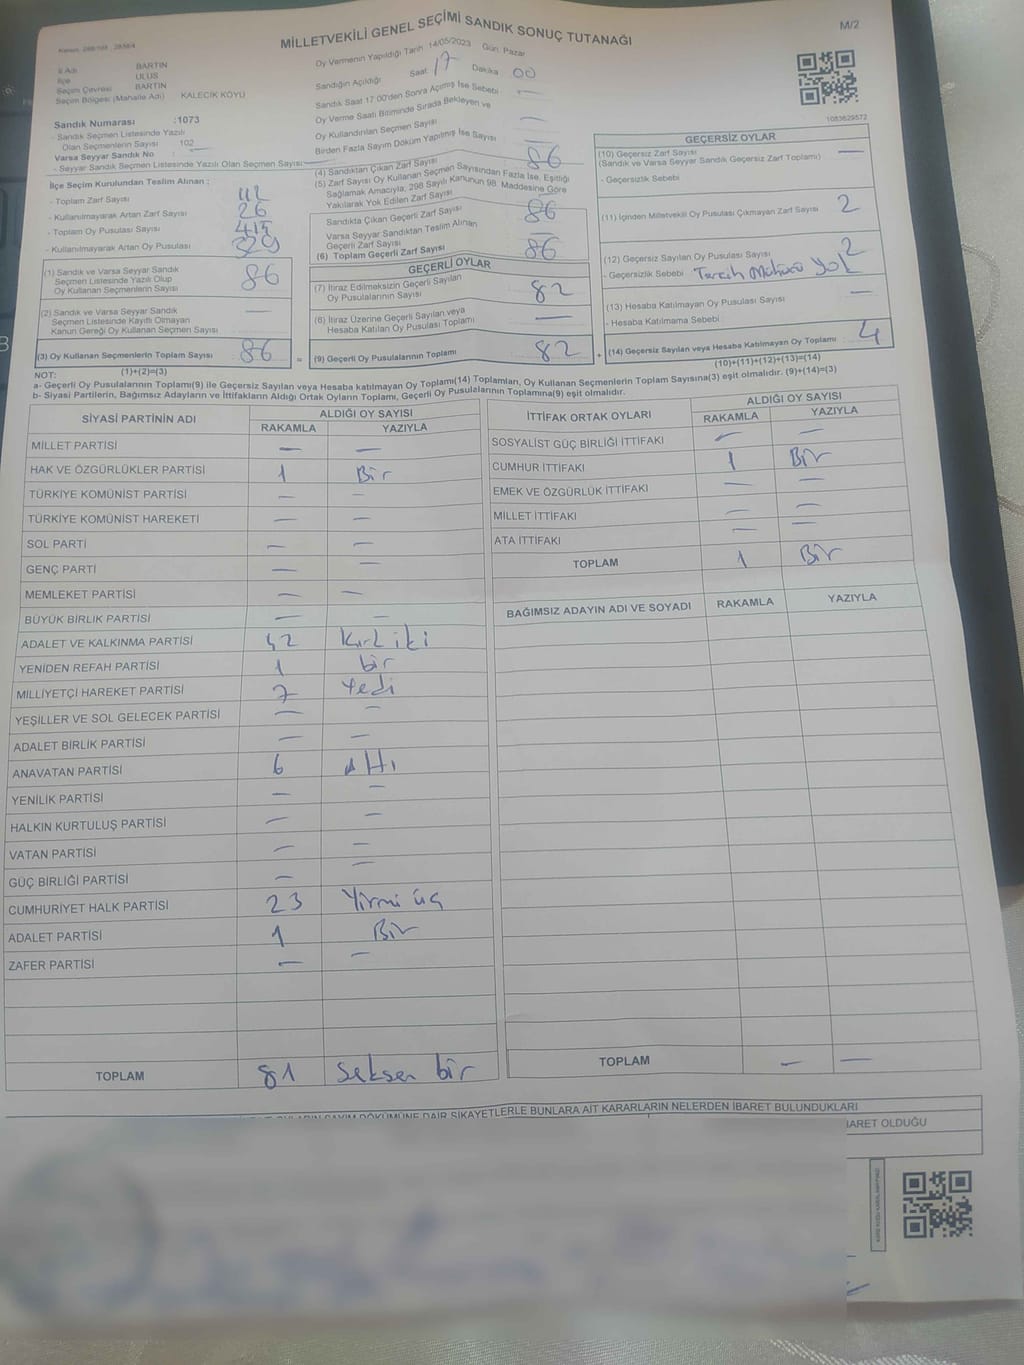 MİLLETVEKİLİ GENEL SEÇİMİ SANDIK SONUÇ TUTANAĞI
M/2
İl Adı BARTIN
İlçe ULUS
Seçim Çevresi BARTIN
Seçim Bölgesi (Mahalle Adı) KALECIK KÖYÜ
Sandık Numarası :1073
- Sandık Seçmen Listesinde Yazılı
Olan Seçmen Sayısı 102
Varsa Seyyar Sandık No :
- Seyyar Sandık Seçmen Listesinde Yazılı Olan Seçmen Sayısı
İlçe Seçim Kurulundan Teslim Alınan :
- Toplam Zarf Sayısı 112
- Kullanılmayarak Artan Zarf Sayısı 26
- Toplam Oy Pusulası Sayısı 415
- Kullanılmayarak Artan Oy Pusulası 329
(1) Sandık ve Varsa Seyyar Sandık
Seçmen Listesinde Yazılı Olup
Oy Kullanan Seçmenlerin Sayısı 86
(2) Sandık ve Varsa Seyyar Sandık
Seçmen Listesinde Kayıtlı Olmayan
Kanun Gereği Oy Kullanan Seçmen Sayısı —
(3) Oy Kullanan Seçmenlerin Toplam Sayısı 86 =
(1)+(2)=(3)
Oy Vermenin Yapıldığı Tarih 14/05/2023 Gün: Pazar
Sandığın Açıldığı Saat 17 Dakika 00
Sandık Saat 17.00'den Sonra Açılmış İse Sebebi —
Oy Verme Saati Bitiminde Sırada Bekleyen ve
Oy Kullandırılan Seçmen Sayısı —
Birden Fazla Sayım Döküm Yapılmış İse Sayısı —
(4) Sandıktan Çıkan Zarf Sayısı 86
(5) Zarf Sayısı Oy Kullanan Seçmen Sayısından Fazla İse, Eşitliği
Sağlamak Amacıyla, 298 Sayılı Kanunun 98. Maddesine Göre
Yakılarak Yok Edilen Zarf Sayısı —
Sandıkta Çıkan Geçerli Zarf Sayısı 86
Varsa Seyyar Sandıktan Teslim Alınan
Geçerli Zarf Sayısı —
(6) Toplam Geçerli Zarf Sayısı 86
GEÇERLİ OYLAR
(7) İtiraz Edilmeksizin Geçerli Sayılan
Oy Pusulalarının Sayısı 82
(8) İtiraz Üzerine Geçerli Sayılan veya
Hesaba Katılan Oy Pusulası Toplamı —
(9) Geçerli Oy Pusulalarının Toplamı 82 +
1083629572
GEÇERSİZ OYLAR
(10) Geçersiz Zarf Sayısı —
(Sandık ve Varsa Seyyar Sandık Geçersiz Zarf Toplamı)
- Geçersizlik Sebebi
(11) İçinden Milletvekili Oy Pusulası Çıkmayan Zarf Sayısı 2
(12) Geçersiz Sayılan Oy Pusulası Sayısı 2
- Geçersizlik Sebebi Tercih Mührü Yok
(13) Hesaba Katılmayan Oy Pusulası Sayısı —
- Hesaba Katılmama Sebebi :
(14) Geçersiz Sayılan veya Hesaba Katılmayan Oy Toplamı : 4
(10)+(11)+(12)+(13)=(14)
NOT:
a- Geçerli Oy Pusulaları Toplamı(9) ile Geçersiz Sayılan veya Hesaba katılmayan Oy Toplamı(14) Toplamları, Oy Kullanan Seçmenlerin Toplam Sayısına(3) eşit olmalıdır. (9)+(14)=(3)
b- Siyasi Partilerin, Bağımsız Adayların ve İttifakların Aldığı Ortak Oyların Toplamı, Geçerli Oy Pusulalarının Toplamına(9) eşit olmalıdır.
SİYASİ PARTİNİN ADI ALDIĞI OY SAYISI
RAKAMLA YAZIYLA
MİLLET PARTİSİ — —
HAK VE ÖZGÜRLÜKLER PARTİSİ 1 Bir
TÜRKİYE KOMÜNİST PARTİSİ — —
TÜRKİYE KOMÜNİST HAREKETİ — —
SOL PARTİ — —
GENÇ PARTİ — —
MEMLEKET PARTİSİ — —
BÜYÜK BİRLİK PARTİSİ — —
ADALET VE KALKINMA PARTİSİ 42 Kırk iki
YENİDEN REFAH PARTİSİ 1 bir
MİLLİYETÇİ HAREKET PARTİSİ 7 Yedi
YEŞİLLER VE SOL GELECEK PARTİSİ — —
ADALET BİRLİK PARTİSİ — —
ANAVATAN PARTİSİ 6 Altı
YENİLİK PARTİSİ — —
HALKIN KURTULUŞ PARTİSİ — —
VATAN PARTİSİ — —
GÜÇ BİRLİĞİ PARTİSİ — —
CUMHURİYET HALK PARTİSİ 23 Yirmi üç
ADALET PARTİSİ 1 Bir
ZAFER PARTİSİ — —
TOPLAM 81 Seksen bir
İTTİFAK ORTAK OYLARI ALDIĞI OY SAYISI
RAKAMLA YAZIYLA
SOSYALİST GÜÇ BİRLİĞİ İTTİFAKI — —
CUMHUR İTTİFAKI 1 Bir
EMEK VE ÖZGÜRLÜK İTTİFAKI — —
MİLLET İTTİFAKI — —
ATA İTTİFAKI — —
TOPLAM 1 Bir
BAĞIMSIZ ADAYIN ADI VE SOYADI RAKAMLA YAZIYLA
TOPLAM — —
OYLARIN SAYIM DÖKÜMÜNE DAİR ŞİKAYETLERLE BUNLARA AİT KARARLARIN NELERDEN İBARET BULUNDUKLARI
İBARET OLDUĞU